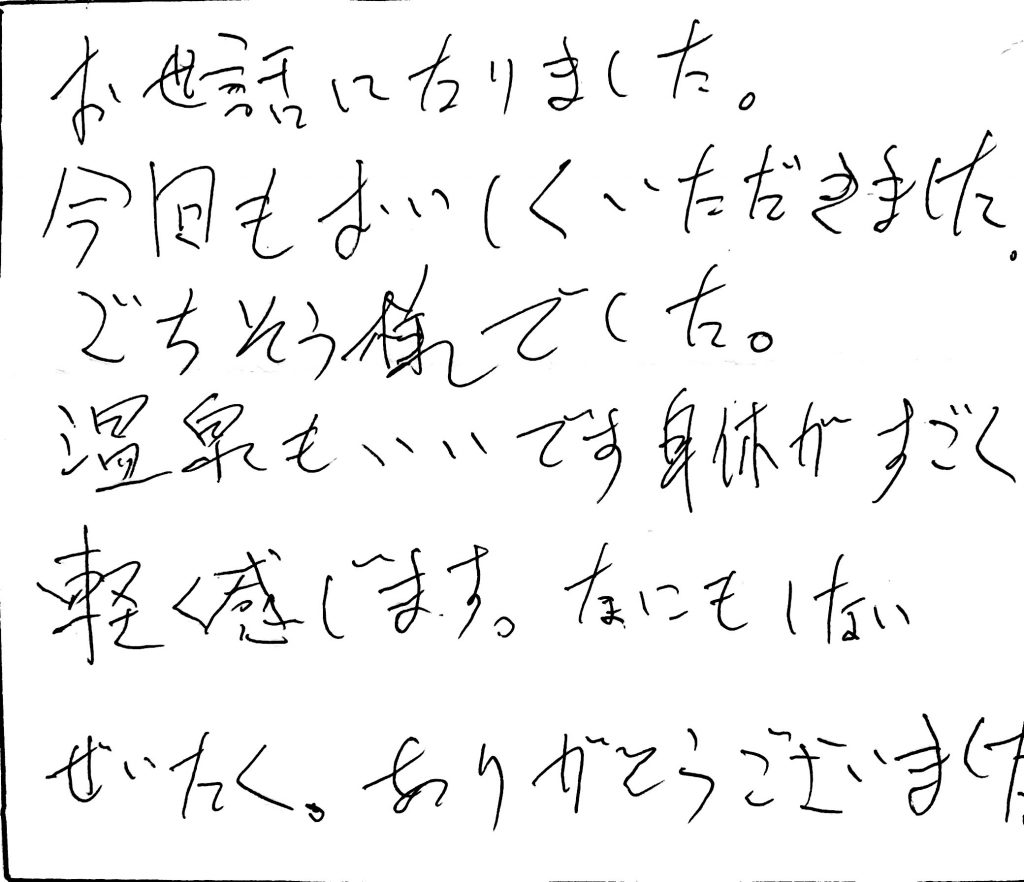 お世話になりました。
今回もおいしくいただきました。
ごちそう様でした。
温泉もいいです身体がすごく
軽く感じます。なにもしない
ぜいたく。ありがとうございました